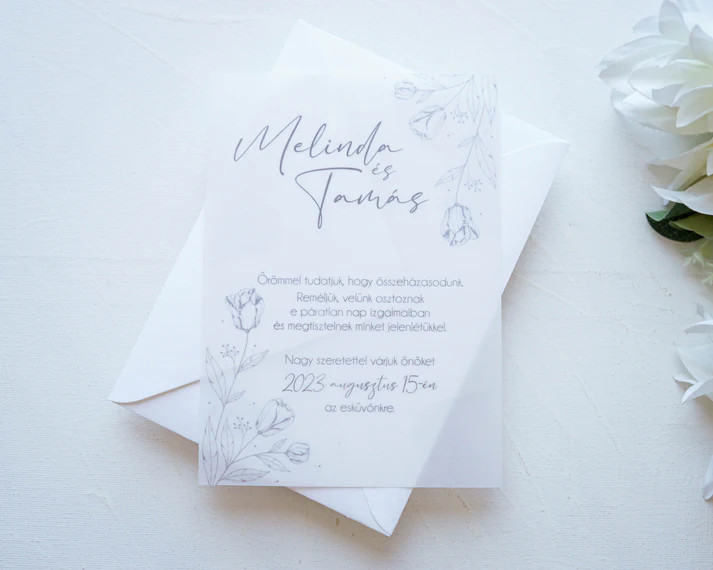 Melinda
és
Tamás
Örömmel tudatjuk, hogy összeházasodunk.
Reméljük, velünk osztoznak
e páratlan nap izgalmaiban
és megtisztelnek minket jelenlétükkel.
Nagy szeretettel várjuk önöket
2023 augusztus 15-én
az esküvőnkre.